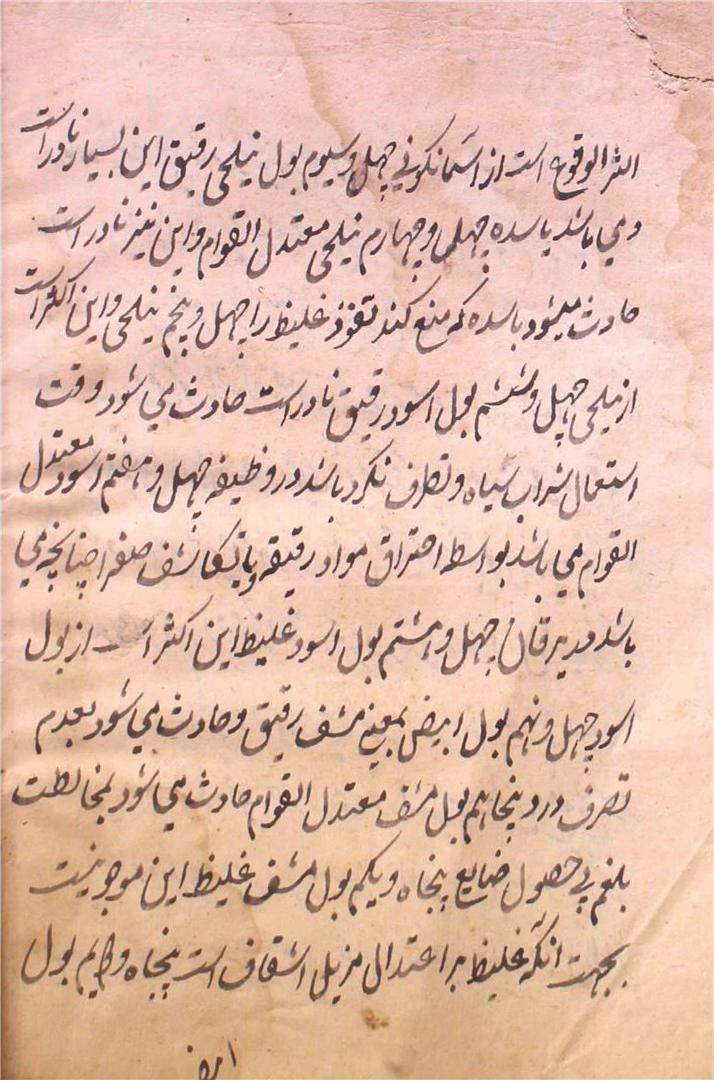 اکثر الوقوع است از اسمانکونی چهل و سیوم بول نیلجی رقیق این بسیار نادر است
و می باشد با سده چهل و چهارم نیلجی معتدل القوام و این نیز نادر است
حادث میشود با سده که منع کند نفوذ غلیظ را چهل و پنجم نیلجی و این اکثر است
از نیلجی چهل و ششم بول اسود رقیق نادر است حادث می شود وقت
استعمال شراب سیاه و تصرف نکرد باشد در و طبیعه چهل و هفتم اسود معتدل
القوام می باشد بواسطه احتراق مواد رقیقه و یا تکاشف صفرا چنانچه می
باشد در یرقان چهل و هشتم بول اسود غلیظ این اکثر است از بول
اسود چهل و نهم بول ابیض بمعنی مشف رقیق و حادث می شود بعدم
تصرف در و پنجاهم بول مشف معتدل القوام حادث می شود بمخالطت
بلغم بی حصول ضایع پنجاه و یکم بول مشف غلیظ این موجود نیست
بجهت آنکه غلیظ بر اعتدال مزیل اشفاف است پنجاه و دویم بول